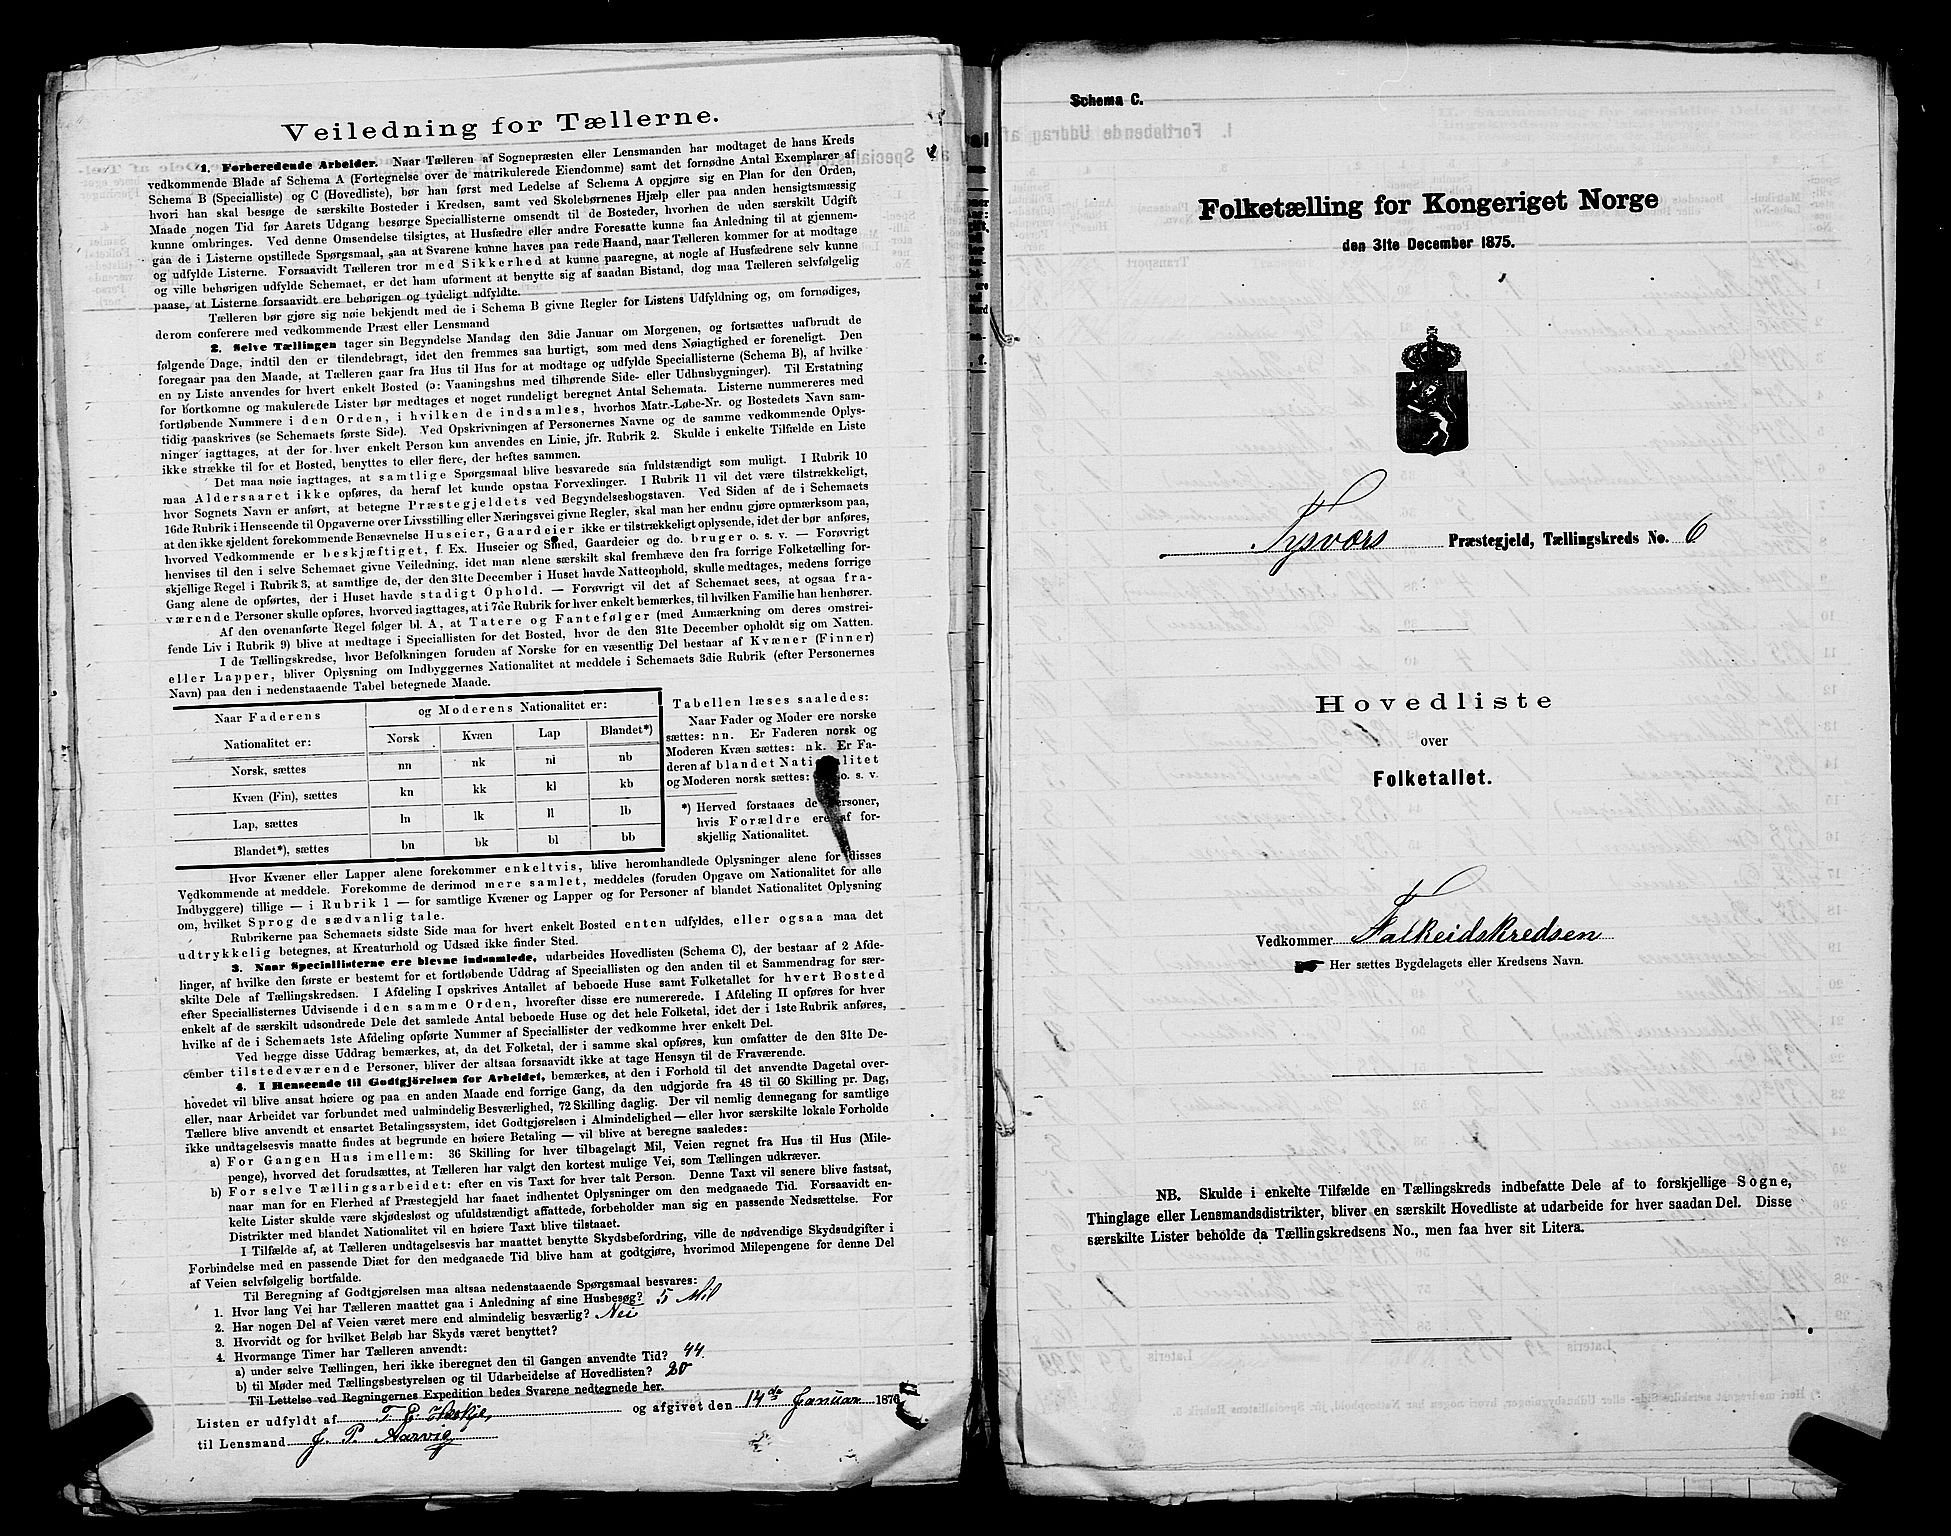 Veiledning for Tællerne.
1. Forberedende Arbeider. Naar Tælleren af Sognepræsten eller Lensmanden har modtaget de hans Kreds
vedkommende Blade af Schema A (Fortegnelse over de matrikulerede Eiendomme) samt det fornødne Antal Exemplarer af
Schema B (Specialliste) og C (Hovedliste), bør han først med Ledelse af Schema A opgjøre sig en Plan for den Orden,
hvori han skal besøge de særskilte Bosteder i Kredsen, samt ved Skolebørnenes Hjælp eller paa anden hensigtsmæssig
Maade nogen Tid før Aarets Udgang besørge Speciallisterne omsendt til de Bosteder, hvorhen de uden særskilt Udgift
kunne ombringes. Ved denne Omsendelse tilsigtes, at Husfædre eller andre Foresatte kunne faa Anledning til at gjennem-
gaa de i Listerne opstillede Spørgsmaal, saa at Svarene kunne haves paa rede Haand, naar Tælleren kommer for at modtage
og udfylde Listerne. Forsaavidt Tælleren tror med Sikkerhed at kunne paaregne, at nogle af Husfædrene selv kunne
og ville behørigen udfylde Schemaet, er det ham uforment at benytte sig af saadan Bistand, dog maa Tælleren selvfølgelig
paase, at Listerne forsaavidt ere behørigen og tydeligt udfyldte.
Tælleren bør gjøre sig nøie bekjendt med de i Schema B givne Regler for Listens Udfyldning og, om fornødiges,
derom conferere med vedkommende Præst eller Lensmand
2. Selve Tællingen tager sin Begyndelse Mandag den 3die Januar om Morgenen, og fortsættes uafbrudt de
følgende Dage, indtil den er tilendebragt, idet den fremmes saa hurtigt, som med dens Nøiagtighed er foreneligt. Den
foregaar paa den Maade, at Tælleren gaar fra Hus til Hus for at modtage og udfylde Speciallisterne (Schema B), af hvilke
en ny Liste anvendes for hvert enkelt Bosted (ɔ: Vaaningshus med tilhørende Side- eller Udhusbygninger). Til Erstatning
for bortkomne og makulerede Lister bør medtages et noget rundeligt beregnet Antal Schemata. Listerne nummereres med
fortløbende Nummere i den Orden, i hvilken de indsamles, hvorhos Matr.-Løbe-Nr. og Bostedets Navn sam-
tidig paaskrives (se Schemaets første Side). Ved Opskrivningen af Personernes Navne og de samme vedkommende Oplys-
ninger iagttages, at der for hver enkelt Person kun anvendes en Linie, jfr. Rubrik 2. Skulde i enkelte Tilfælde en Liste
ikke strække til for et Bosted, benyttes to eller flere, der heftes sammen.
Det maa nøie iagttages, at samtlige Spørgsmaal blive besvarede saa fuldstændigt som muligt. I Rubrik 10
maa Aldersaaret ikke opføres, da heraf let kunde opstaa Forvexlinger. I Rubrik 11 vil det være tilstrækkeligt,
hvor Sognets Navn er anført, at betegne Præstegjeldets ved Begyndelsesbogstaven. Ved Siden af de i Schemaets
16de Rubrik i Henseende til Opgaverne over Livsstilling eller Næringsvei givne Regler, skal man her endnu gjøre opmærksom paa,
at den ikke sjeldent forekommende Benævnelse Huseier, Gaardeier ikke er tilstrækkeligt oplysende, idet der bør anføres,
hvorved Vedkommende er beskjæftiget, f. Ex. Huseier og Smed, Gaardeier og do. bruger o. s. v. — Forøvrigt
henvises til den i selve Schemaet givne Veiledning, idet man alene særskilt skal fremhæve den fra forrige Folketælling for-
skjellige Regel i Rubrik 3, at samtlige de, der den 31te December i Huset havde Natteophold, skulle medtages, medens forrige
Gang alene de opførtes, der i Huset havde stadigt Ophold. — Forøvrigt vil det af Schemaet sees, at ogsaa fra-
værende Personer skulle opføres, hvorved iagttages, at i 7de Rubrik for hver enkelt bemærkes, til hvilken Familie han henhører.
Af den ovenanførte Regel følger bl. A, at Tatere og Fantefølger (med Anmærkning om deres omstrei-
fende Liv i Rubrik 9) blive at medtage i Speciallisten for det Bosted, hvor de den 31te December opholdt sig om Natten.
I de Tællingskredse, hvor Befolkningen foruden af Norske for en væsentlig Del bestaar af Kvæner (Finner)
eller Lapper, bliver Oplysning om Indbyggernes Nationalitet at meddele i Schemaets 3die Rubrik (efter Personernes
Navn) paa den i nedenstaaende Tabel betegnede Maade.
Naar Faderens Nationalitet er: og Moderens Nationalitet er:
Norsk Kvæn Lap Blandet*)
Norsk, sættes nn nk nl nb
Kvæn (Fin), sættes kn kk kl kb
Lap, sættes ln lk ll lb
Blandet*), sættes bn bk bl bb
Tabellen læses saaledes:
Naar Fader og Moder ere norske
sættes: nn. Er Faderen norsk og
Moderen Kvæn sættes: nk. Er Fa-
deren af blandet Nationalitet
og Moderen norsk sættes: o. s. v.
*) Herved forstaaes de Personer,
hvis Forældre ere af for-
skjellig Nationalitet.
Hvor Kvæner eller Lapper alene forekommer enkeltvis, blive heromhandlede Oplysninger alene for disses
Vedkommende at meddele. Forekomme de derimod mere samlet, meddeles (foruden Opgave om Nationalitet for alle
Indbyggere) tillige — i Rubrik 1 — for samtlige Kvæner og Lapper og for Personer af blandet Nationalitet Oplysning
om, hvilket Sprog de sædvanlig tale.
Rubrikerne paa Schemaets sidste Side maa for hvert enkelt Bosted enten udfyldes, eller ogsaa maa det
udtrykkelig betegnes, at Kreaturhold og Udsæd ikke finder Sted.
3. Naar Speciallisterne ere blevne indsamlede, udarbeides Hovedlisten (Schema C), der bestaar af 2 Afde-
linger, af hvilke den første er bestemt for et fortløbende Uddrag af Speciallisten og den anden til et Sammendrag for sær-
skilte Dele af Tællingskredsen. I Afdeling I opskrives Antallet af beboede Huse samt Folketallet for hvert Bosted
efter Speciallisternes Udvisende i den samme Orden, hvorefter disse ere numererede. I Afdeling II opføres for hver
enkelt af de særskilt udsondrede Dele det samlede Antal beboede Huse og det hele Folketal, idet der i 1ste Rubrik anføres,
hvilke af de i Schemaets 1ste Afdeling opførte Nummer af Speciallister der vedkomme hver enkelt Del.
Ved begge disse Uddrag bemærkes, at, da det Folketal, der i samme skal opføres, kun omfatter de den 31te De-
cember tilstedeværende Personer, bliver der altsaa forsaavidt ikke at tage Hensyn til de Fraværende.
4. I Henseende til Godtgjørelsen for Arbeidet, bemærkes, at den i Forhold til det anvendte Dagetal over-
hovedet vil blive ansat høiere og paa en anden Maade end forrige Gang, da den udgjorde fra 48 til 60 Skilling pr. Dag,
eller, naar Arbeidet var forbundet med ualmindelig Besværlighed, 72 Skilling daglig. Der vil nemlig dennegang for samtlige
Tællere blive anvendt et ensartet Betalingssystem, idet Godtgjørelsen i Almindelighed — eller hvor særskilte lokale Forholde
ikke undtagelsesvis maatte findes at begrunde en høiere Betaling — vil blive at beregne saaledes:
a) For Gangen Hus imellem: 36 Skilling for hver tilbagelagt Mil, Veien regnet fra Hus til Hus (Mile-
penge), hvorved det forudsættes, at Tælleren har valgt den kortest mulige Vei, som Tællingen udkræver.
b) For selve Tællingsarbeidet: efter en vis Taxt for hver talt Person. Denne Taxt vil senere blive fastsat,
naar man for en Flerhed af Præstegjeld har faaet indhentet Oplysninger om den medgaaede Tid. Forsaavidt en-
kelte Lister skulde være skjødesløst og ufuldstændigt affattede, forbeholder man sig en passende Nedsættelse. For
Distrikter med blandet Nationalitet vil en høiere Taxt blive tilstaaet.
I Tilfælde af, at Tælleren undtagelsesvis har maattet benytte Skydsbefordring, ville de nødvendige Skydsudgifter i
Forbindelse med en passende Diæt for den medgaaede Tid blive ham at godtgjøre, hvorimod Milepengene for denne Del
af Veien selvfølgelig bortfalde.
Til Beregning af Godtgjørelsen maa altsaa nedenstaaende Spørgsmaal besvares:
1. Hvor lang Vei har Tælleren maattet gaa i Anledning af sine Husbesøg? 5 Mil
2. Har nogen Del af Veien været mere end almindelig besværlig? Nei
3. Hvorvidt og for hvilket Beløb har Skyds været benyttet?
4. Hvormange Timer har Tælleren anvendt:
a) under selve Tællingen, heri ikke iberegnet den til Gangen anvendte Tid? 44
b) til Møder med Tællingsbestyrelsen og til Udarbeidelse af Hovedlisten? 20
Til Lettelse ved Regningernes Expedition bedes Svarene nedtegnede her.
Listen er udfyldt af T. E. og afgivet den 14de Januar 1876
til Lensmand J. P. Aarvig
Schema C.
Folketælling for Kongeriget Norge
den 31te December 1875.
Tysvørs Præstegjeld, Tællingskreds No. 6
Hovedliste
over
Folketallet.
Vedkommer Falkeidskredsen
Her sættes Bygdelagets eller Kredsens Navn.
NB. Skulde i enkelte Tilfælde en Tællingskreds indbefatte Dele af to forskjellige Sogne,
Thinglage eller Lensmandsdistrikter, bliver en særskilt Hovedliste at udarbeide for hver saadan Del. Disse
særskilte Lister beholde da Tællingskredsens No., men faa hver sit Litera.